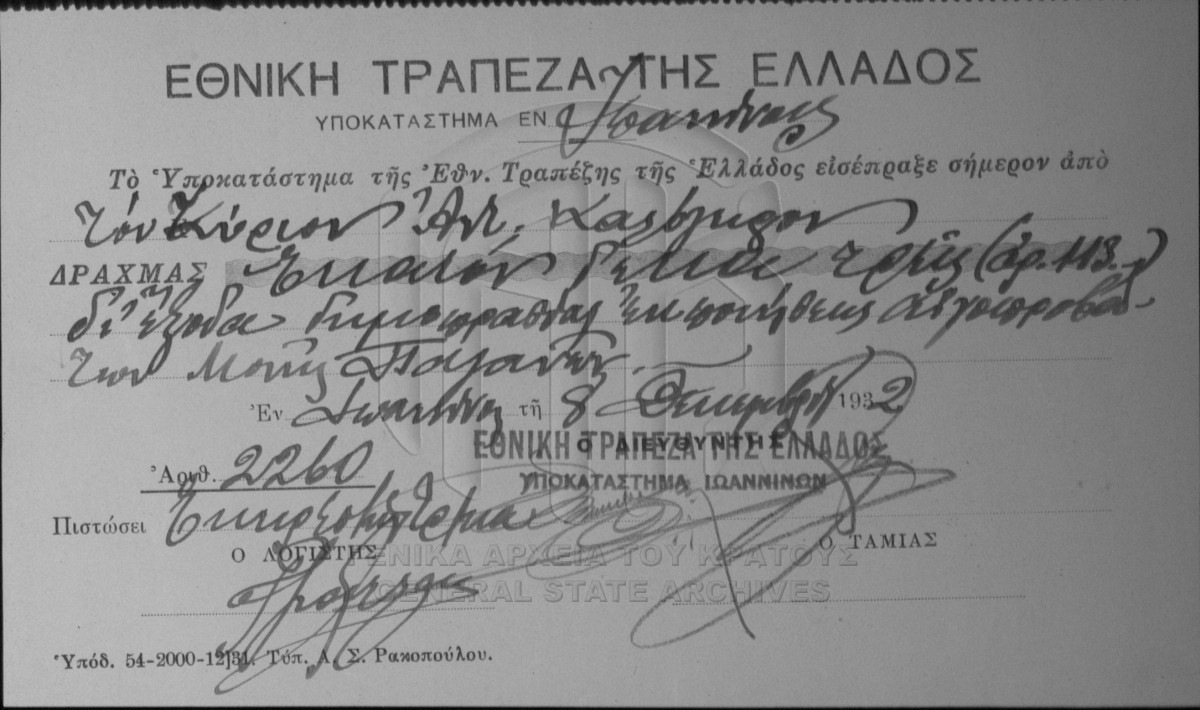 ΕΘΝΙΚΗ ΤΡΑΠΕΖΑ ΤΗΣ ΕΛΛΑΔΟΣ
ΥΠΟΚΑΤΑΣΤΗΜΑ ΕΝ Ἰωαννίνοις
Τὸ Ὑποκατάστημα τῆς Ἐθν. Τραπέζης τῆς Ἑλλάδος εἰσέπραξε σήμερον ἀπὸ
Τὸν Κύριον Ἀντ.
ΔΡΑΧΜΑΣ Ἑκατόν δέκα τρεῖς (ἀρ. 113.-)
δι' ἔξοδα δημοπρασίας ἐκποιήσεως αἰγοπροβά-
των Μονῆς
Ἐν Ἰωαννίνοις τῇ 8 Δεκεμβρίου 1932
Ο ΔΙΕΥΘΥΝΤΗΣ
ΕΘΝΙΚΗ ΤΡΑΠΕΖΑ ΤΗΣ ΕΛΛΑΔΟΣ
ΥΠΟΚΑΤΑΣΤΗΜΑ ΙΩΑΝΝΙΝΩΝ
Ἀριθ. 2260
Πιστώσει
Ο ΛΟΓΙΣΤΗΣ
Ο ΤΑΜΙΑΣ
ΓΕΝΙΚΑ ΑΡΧΕΙΑ ΤΟΥ ΚΡΑΤΟΥΣ
GENERAL STATE ARCHIVES
Ὑπόδ. 54-2000-12]31. Τύπ. Α. Σ. Ρακοπούλου.